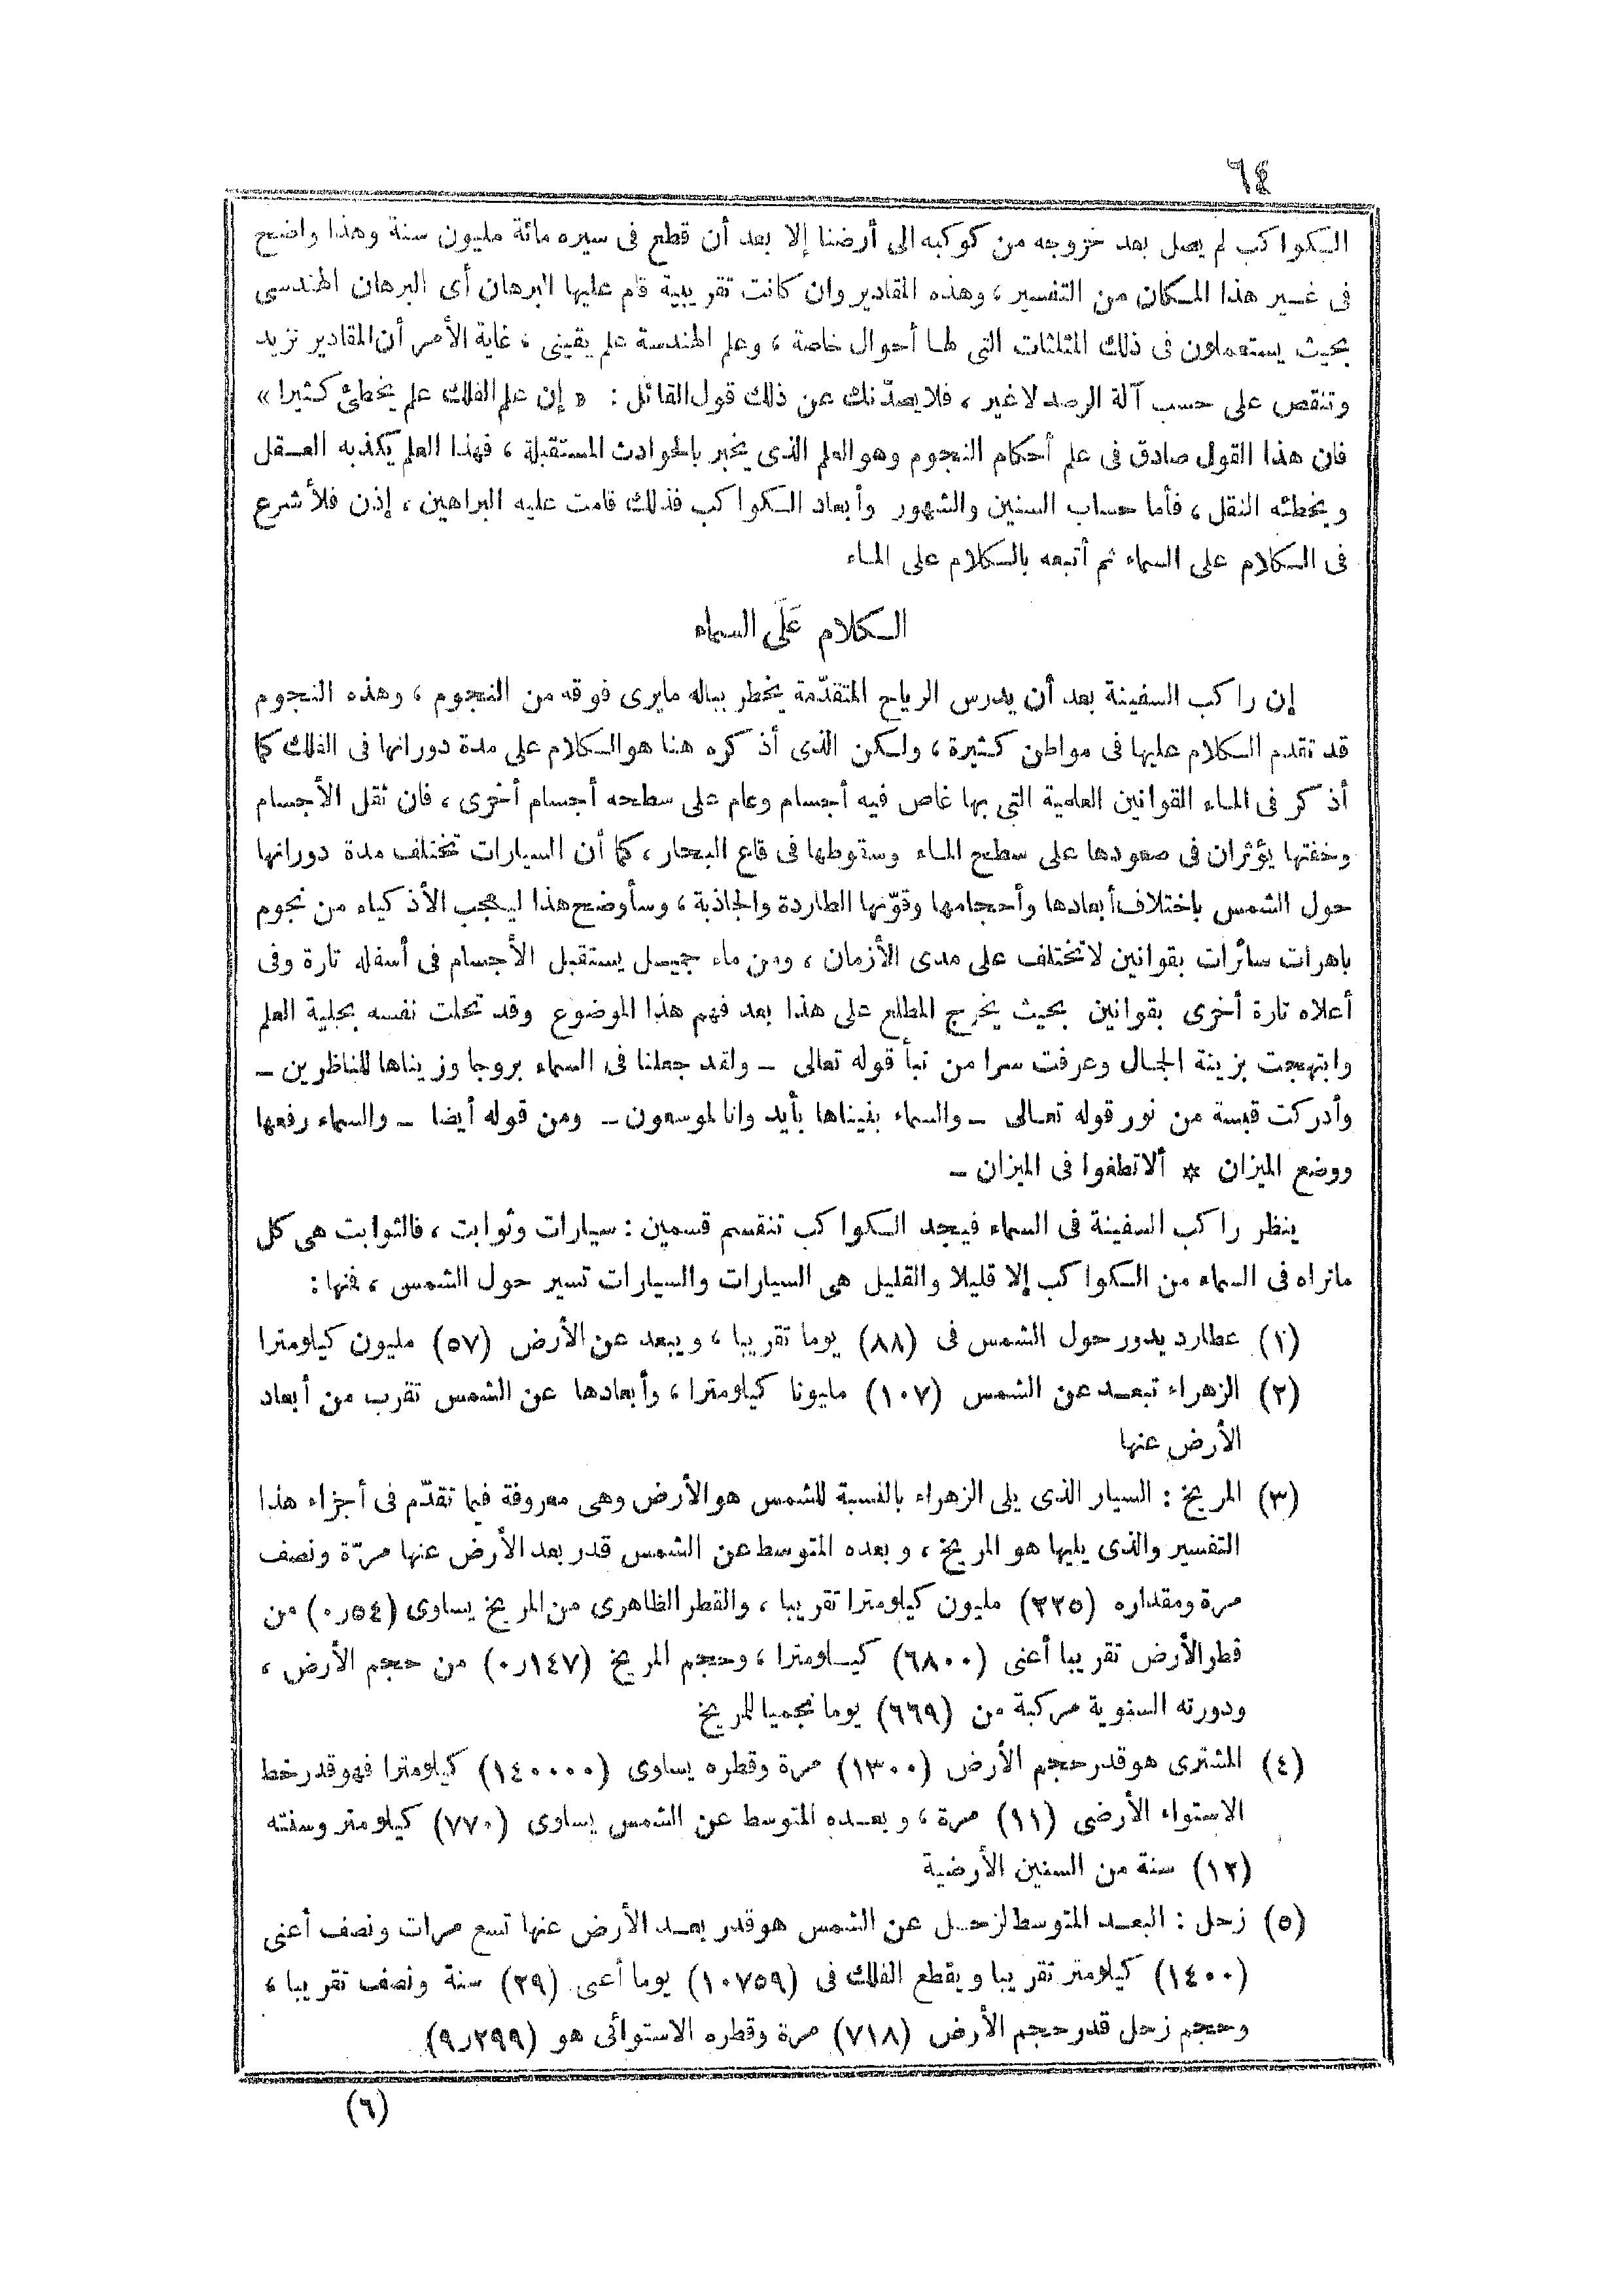 ٦٤
الكواكب لم يصل بعد خروجه من كوكبه الى أرضنا إلا بعد أن قطع فى سيره مائة مليون سنة وهذا واضح
فى غير هذا المكان من التفسير ، وهذه المقادير وان كانت تقريبية قام عليها البرهان أى البرهان الهندسى
بحيث يستعملون فى ذلك المثلثات التى لها أحوال خاصة ، وعلم الهندسة علم يقينى ، غاية الأمر أن المقادير تزيد
وتنقص على حسب آلة الرصد لاغير ، فلا يصدّنك عن ذلك قول القائل : « إن علم الفلك علم يخطئ كثيرا »
فان هذا القول صادق فى علم أحكام النجوم وهو العلم الذى يخبر بالحوادث المستقبلة ، فهذا العلم يكذبه العقل
ويخطئه النقل ، فأما حساب السنين والشهور وأبعاد الكواكب فذلك قامت عليه البراهين ، إذن فلأشرع
فى الكلام على السماء ثم أتبعه بالكلام على الماء
الكلام عَلَى السماء
إن راكب السفينة بعد أن يدرس الرياح المتقدّمة يخطر بباله مايرى فوقه من النجوم ، وهذه النجوم
قد تقدم الكلام عليها فى مواطن كثيرة ، ولكن الذى أذكره هنا هو الكلام على مدة دورانها فى الفلك كما
أذكر فى الماء القوانين العلمية التى بها غاص فيه أجسام وعام على سطحه أجسام أخرى ، فان ثقل الأجسام
وخفتها يؤثران فى صعودها على سطح الماء وسقوطها فى قاع البحار ، كما أن السيارات تختلف مدة دورانها
حول الشمس باختلاف أبعادها وأحجامها وقوّتها الطاردة والجاذبة ، وسأوضح هذا ليعجب الأذكياء من نجوم
باهرات سائرات بقوانين لاتختلف على مدى الأزمان ، ومن ماء جميل يستقبل الأجسام فى أسفله تارة وفى
أعلاه تارة أخرى بقوانين بحيث يخرج المطلع على هذا بعد فهم هذا الموضوع وقد تحلت نفسه بحلية العلم
وابتهجت بزينة الجمال وعرفت سرا من نبأ قوله تعالى ـ ولقد جعلنا فى السماء بروجا وزيناها للناظرين ـ
وأدركت قبسة من نور قوله تعالى ـ والسماء بنيناها بأيد وانا لموسعون ـ ومن قوله أيضا ـ والسماء رفعها
ووضع الميزان * ألا تطغوا فى الميزان ـ
ينظر راكب السفينة فى السماء فيجد الكواكب تنقسم قسمين : سيارات وثوابت ، فالثوابت هى كل
ماتراه فى السماء من الكواكب إلا قليلا والقليل هى السيارات والسيارات تسير حول الشمس ، فمنها :
(١) عطارد يدور حول الشمس فى (٨٨) يوما تقريبا ، ويبعد عن الأرض (٥٧) مليون كيلومترا
(٢) الزهراء تبعد عن الشمس (١٠٧) مليونا كيلومترا ، وأبعادها عن الشمس تقرب من أبعاد
الأرض عنها
(٣) المريخ : السيار الذى يلى الزهراء بالنسبة للشمس هو الأرض وهى معروفة فيما تقدّم فى أجزاء هذا
التفسير والذى يليها هو المريخ ، وبعده المتوسط عن الشمس قدر بعد الأرض عنها مرّة ونصف
مرة ومقداره (٢٢٥) مليون كيلومترا تقريبا ، والقطر الظاهرى من المريخ يساوى (٥٤ر٠) من
قطر الأرض تقريبا أعنى (٦٨٠٠) كيلومترا ، وحجم المريخ (١٤٧ر٠) من حجم الأرض ،
ودورته السنوية مركبة من (٦٦٩) يوما نجميا للمريخ
(٤) المشترى هو قدر حجم الأرض (١٣٠٠) مرة وقطره يساوى (١٤٠٠٠٠) كيلومترا فهو قدر خط
الاستواء الأرضى (١١) مرة ، وبعده المتوسط عن الشمس يساوى (٧٧٠) كيلومتر وسنته
(١٢) سنة من السنين الأرضية
(٥) زحل : البعد المتوسط لزحل عن الشمس هو قدر بعد الأرض عنها تسع مرات ونصف أعنى
(١٤٠٠) كيلومتر تقريبا ويقطع الفلك فى (١٠٧٥٩) يوما أعنى (٢٩) سنة ونصف تقريبا ،
وحجم زحل قدر حجم الأرض (٧١٨) مرة وقطره الاستوائى هو (٢٩٩ر٩)
(٦)